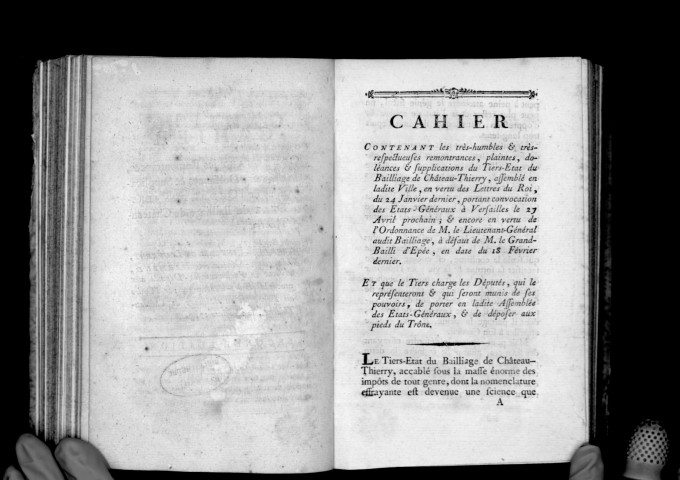 CAHIER
CONTENANT les très-humbles & très-
respectueuses remontrances, plaintes, do-
léances & supplications du Tiers-Etat du
Bailliage de Château-Thierry, assemblé en
ladite Ville, en vertu des Lettres du Roi,
du 24 Janvier dernier, portant convocation
des Etats-Généraux à Versailles le 27
Avril prochain; & encore en vertu de
l'Ordonnance de M. le Lieutenant-Général
audit Bailliage, à défaut de M. le Grand-
Bailli d'Epée, en date du 18 Février
dernier.
ET que le Tiers charge les Députés, qui le
représenteront & qui seront munis de ses
pouvoirs, de porter en ladite Assemblée
des Etats-Généraux, & de déposer aux
pieds du Trône.
LE Tiers-Etat du Bailliage de Château-
Thierry, accablé sous la masse énorme des
impôts de tout genre, dont la nomenclature
effrayante est devenue une science que
A